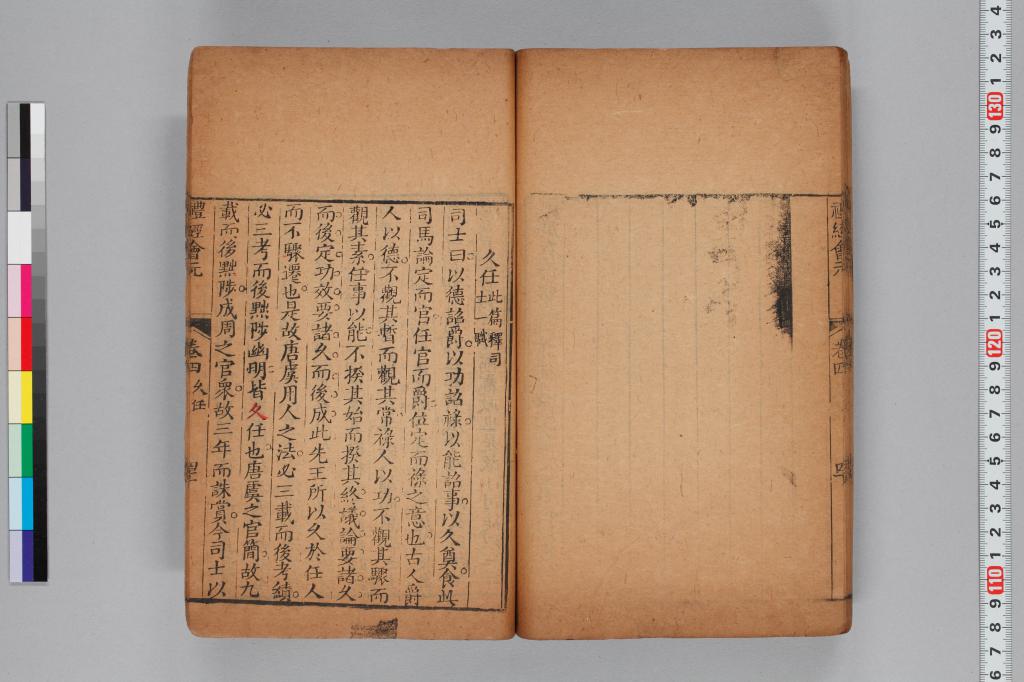 禮經會元
卷四
久任此篇釋司
士一職
司士曰以德詔爵以功詔祿以能詔事以久奠食此
司馬論定而官任官而爵位定而祿之意也古人爵
人以德不觀其暫而觀其常祿人以功不觀其驟而
觀其素任事以能不揆其始而揆其終議論要諸久
而後定功效要諸久而後成此先王所以久於任人
而不驟遷也是故唐虞用人之法必三載而後考績
必三考而後黜陟幽明皆久任也唐虞之官簡故九
載而後黜陟成周之官衆故三年而誅賞今司士以
禮經會元
卷四 久任